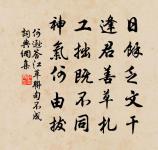 日餘乏文干
逢君善草札
工拙既不同
神氣何由拔
何遜答江革聯句不成
詞典網集